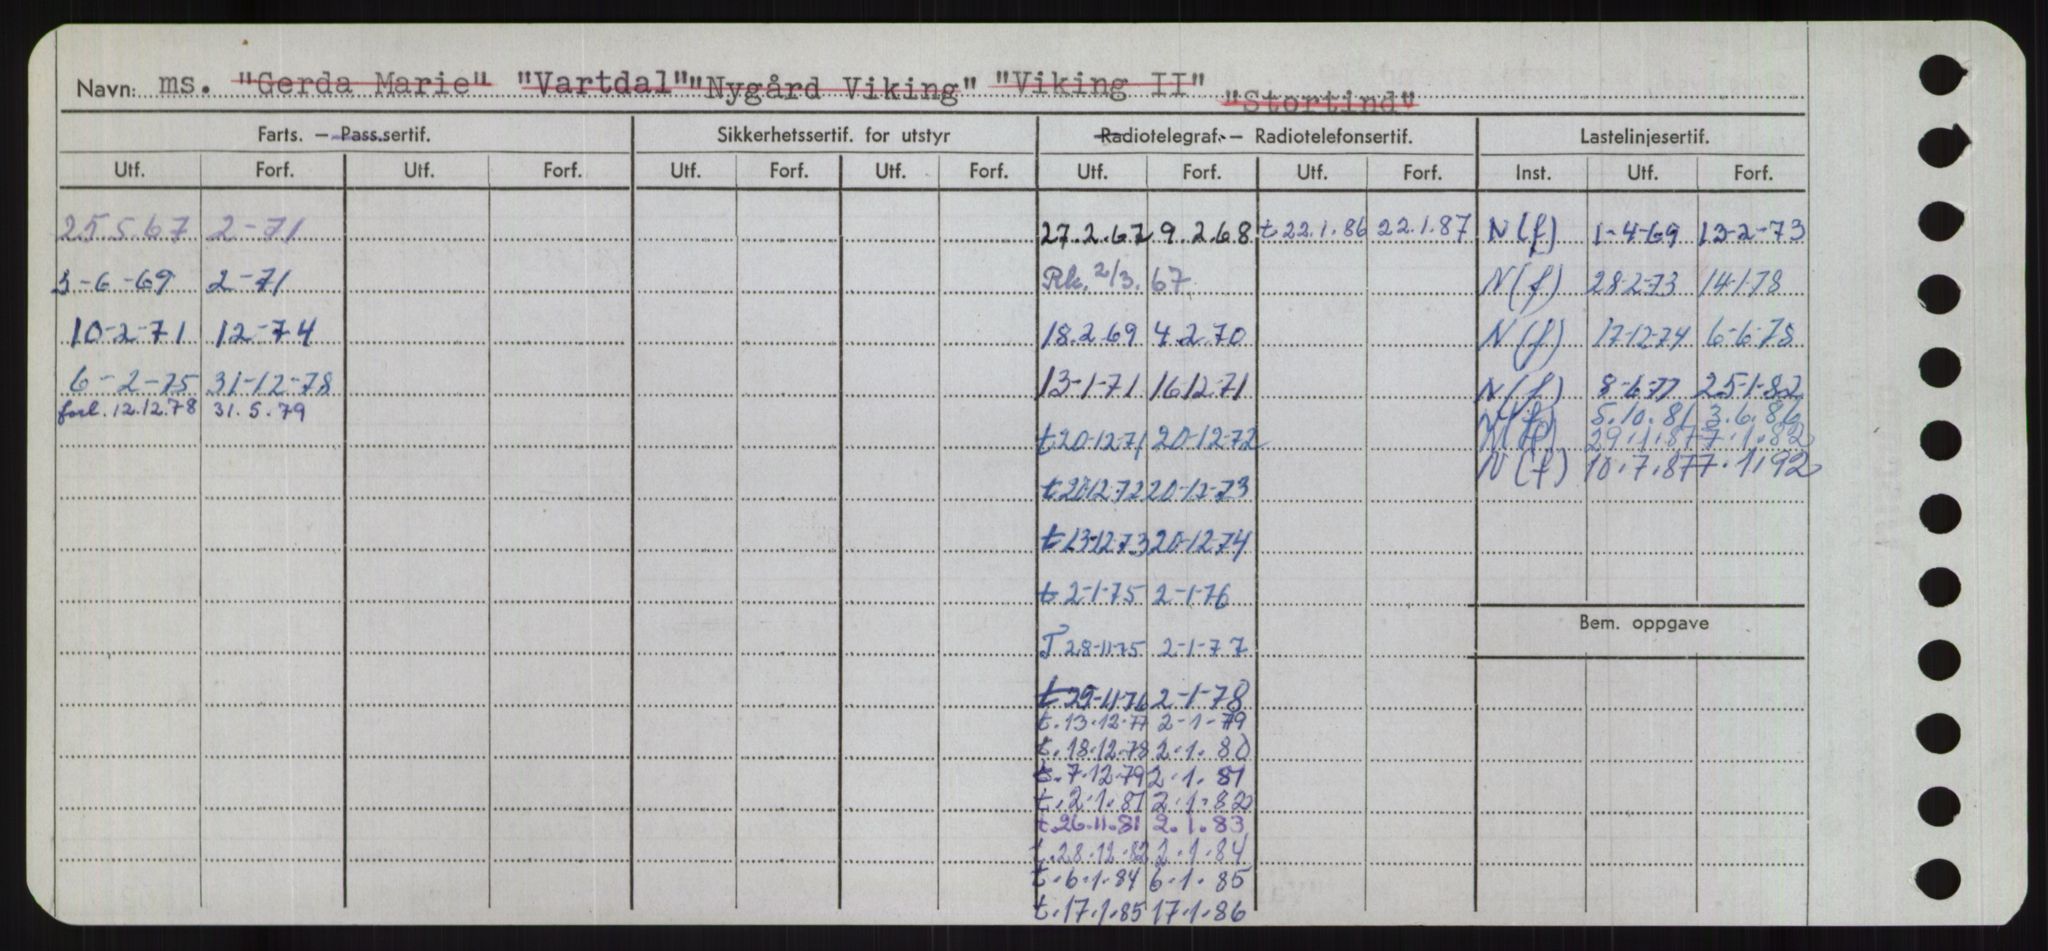 Navn: ms. "Gerda Marie" "Vartdal" "Nygård Viking" "Viking II" "Stortind"
Farts. — Pass.sertif. Sikkerhetssertif. for utstyr Radiotelegraf. — Radiotelefonsertif. Lastelinjesertif.
Utf. Forf. Utf. Forf. Utf. Forf. Utf. Forf. Utf. Forf. Utf. Forf. Inst. Utf. Forf.
25.5.67 2-71 27.2.67 9.2.68 t 22.1.86 22.1.87 N(f) 1-4-69 13-2-73
3-6-69 2-71 Rk. 2/3.67 N(f) 28-2-73 14-1-78
10-2-71 12-74 18.2.69 4.2.70 N(f) 17-12-74 6-6-78
6-2-75 31-12-78 13-1-71 16-12-71 N(f) 8-6-77 25-1-82
forl. 12.12.78 31.5.79 N(f) 5.10.81 3.6.86
t 20-12-71 20-12-72 N(f) 29.1.87 7.1.92
N(f) 10.7.87 7.1.92
t 20-12-72 20-12-73
t 13-12-73 20-12-74
t 2-1-75 2-1-76
Bem. oppgave
T 28-11-75 2-1-77
t 29-11-76 2-1-78
t. 13-12-77 2-1-79
t. 18-12-78 2.1.80
t. 7-12-79 2.1.81
t. 2.1.81 2.1.82
t. 26.11.81 2.1.83
t. 28.12.82 2.1.84
t. 6.1.84 6.1.85
t. 17.1.85 17.1.86